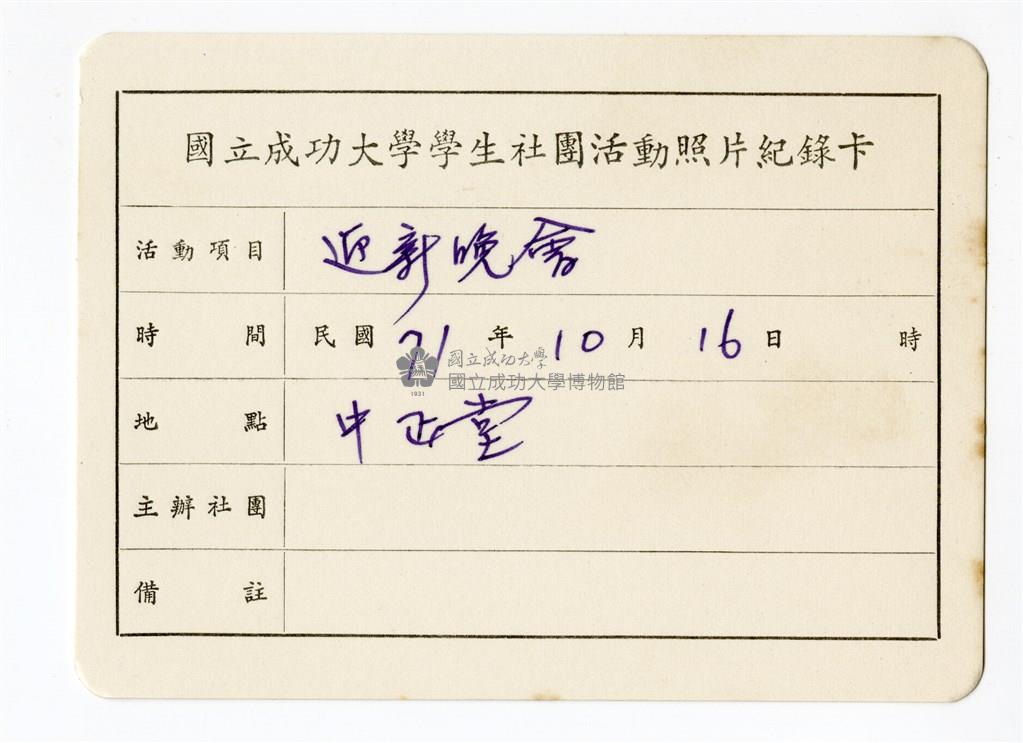 國立成功大學學生社團活動照片紀錄卡
活動項目 迎新晚會
時間 民國 71 年 10 月 16 日 時
國立成功大學
國立成功大學博物館
1931
地點 中正堂
主辦社團
備註